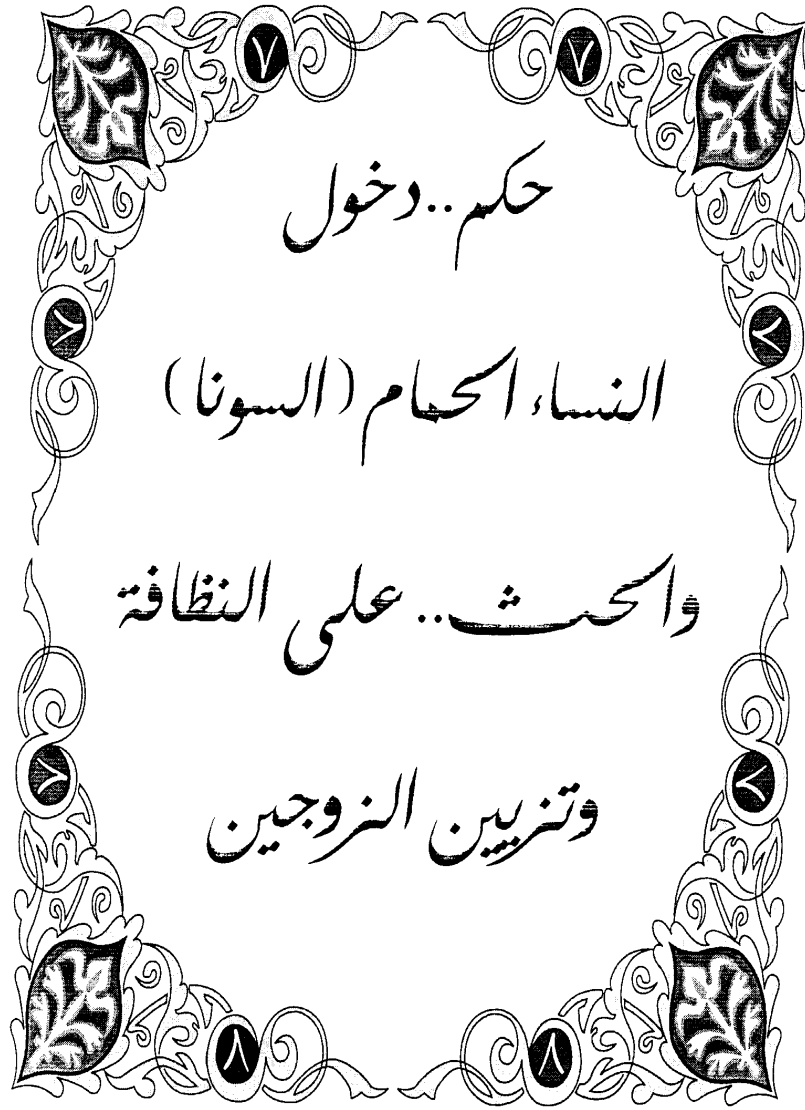 حكم..دخول
النساء الحمام (السونا)
والحث.. على النظافة
وتزيين الزوجين